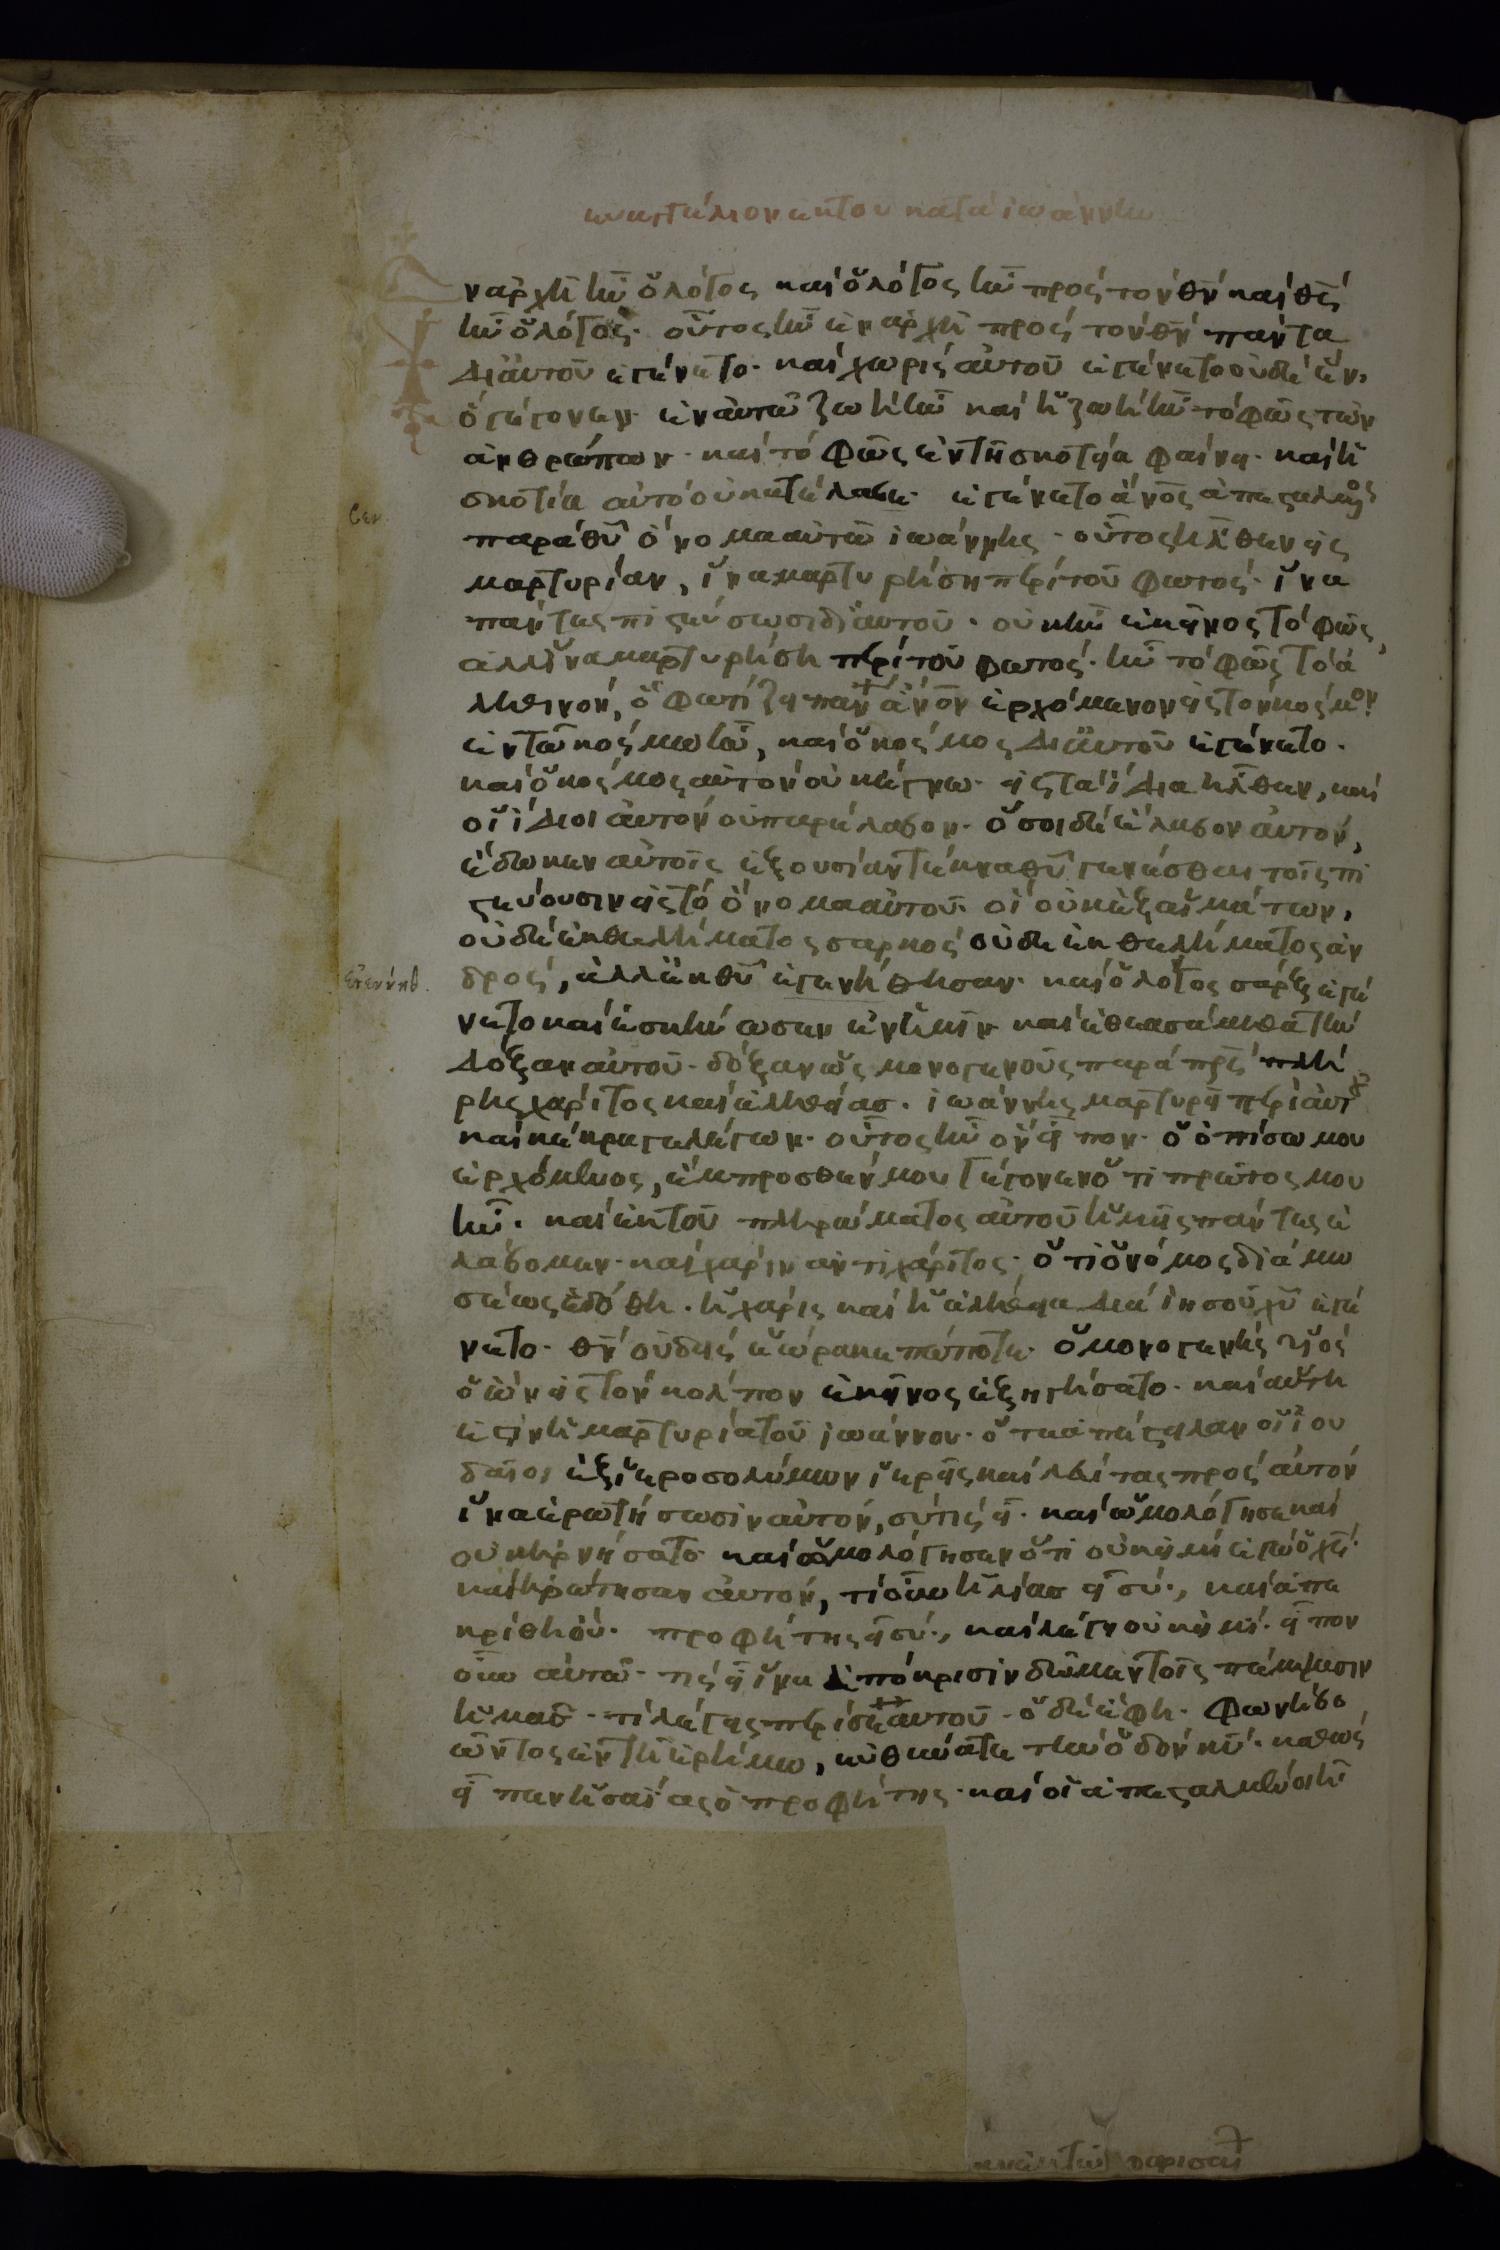 εὐαγγέλιον ἐκ τοῦ κατὰ ἰωάννην
Ἐν ἀρχῆ ἦν ὁ λόγος καὶ ὁ λόγος ἦν πρὸς τὸν θν καὶ θς
ἦν ὁ λόγος· οὗτος ἦν ἐν ἀρχῆ πρὸς τὸν θν πάντα
δι αὐτοῦ ἐγένετο· καὶ χωρὶς αὐτοῦ ἐγένετο οὐδὲ ἕν,
ὃ γέγονεν· ἐν αὐτῶ ζωὴ ἦν καὶ ἡ ζωὴ ἦν τὸ φῶς τῶν
ἀνθρώπων· καὶ τὸ φῶς ἐν τῆ σκοτεία φαίνει· καὶ ἡ
σκοτία αὐτὸ οὐ κατέλαβε· ἐγένετο ἄνος ἀπεσταλμένος
παρὰ θυ ὄνομα αὐτῶ ἰωάννης· οὗτος ἦλθεν εἰς
μαρτυρίαν, ἵνα μαρτυρήση περὶ τοῦ φωτός· ἵνα
πάντες πιστεύσωσι δι αὐτοῦ· οὐκ ἦν ἐκεῖνος τὸ φῶς,
ἀλλ ἵνα μαρτυρήση περὶ τοῦ φωτός· ἦν τὸ φῶς τὸ ἀ
ληθινόν, ὃ φωτίζει πάντα ἄνον ἐρχόμενον εἰς τὸν κόσμον·
ἐν τῶ κόσμω ἦν, καὶ ὁ κόσμος δι αὐτοῦ ἐγένετο·
καὶ ὁ κόσμος αὐτὸν οὐκ ἔγνω· εἰς τὰ ἴδια ἦλθεν, καὶ
οἱ ἴδιοι αὐτὸν οὐ παρέλαβον· ὅσοι δὲ ἔλαβον αὐτὸν,
ἔδωκεν αὐτοῖς ἐξουσίαν τέκνα θυ γενέσθαι τοῖς πι
στεύουσιν εἰς τὸ ὄνομα αὐτοῦ· οἳ οὐκ ἐξ αἱμάτων,
οὐδὲ ἐκ θελήματος σαρκὸς οὐδὲ ἐκ θελήματος ἀν
δρός, ἀλλ ἐκ θυ ἐγεννήθησαν· καὶ ὁ λόγος σὰρξ ἐγέ
νετο καὶ ἐσκήνωσεν ἐν ἡμῖν καὶ ἐθεασάμεθα τὴν
δόξαν αὐτοῦ· δόξαν ὡς μονογενοῦς παρὰ πρς πλή
ρης χάριτος καὶ ἀληθείας· ἰωάννης μαρτυρεῖ περὶ αὐτοῦ
καὶ κέκραγε λέγων· οὗτος ἦν ὃν εἶπον· ὁ ὀπίσω μου
ἐρχόμενος, ἔμπροσθέν μου γέγονεν ὅτι πρῶτός μου
ἦν· καὶ ἐκ τοῦ πληρώματος αὐτοῦ ἡμεῖς πάντες ἐ
λάβομεν· καὶ χάριν ἀντὶ χάριτος· ὅτι ὁ νόμος διὰ μω
σέως ἐδόθη· ἡ χάρις καὶ ἡ ἀλήθεια διὰ ἰησοῦ χυ ἐγέ
νετο· θν οὐδεὶς ἑώρακε πώποτε· ὁ μονογενὴς υἱὸς
ὁ ὢν εἰς τὸν κόλπον ἐκεῖνος ἐξηγήσατο· καὶ αὕτη
ἐστὶν ἡ μαρτυρία τοῦ ἰωάννου· ὅτε ἀπέστειλαν οἱ ἰου
δαῖοι ἐξ ἱεροσολύμων ἱερεῖς καὶ λευίτας πρὸς αὐτὸν
ἵνα ἐρωτήσωσιν αὐτόν, σὺ τίς εἶ· καὶ ὡμολόγησε καὶ
οὐκ ἠρνήσατο· καὶ ὡμολόγησεν ὅτι οὐκ εἰμὶ ἐγὼ ὁ χς·
καὶ ἠρώτησαν αὐτόν, τί οὖν ἠλίας εἶ σύ·, καὶ ἀπε
κρίθη οὔ· προφήτης εἶ σύ·, καὶ λέγει οὐκ εἰμί· εἶπον
οὖν αὐτῶ· τίς εἶ ἵνα ἀπόκρισιν δῶμεν τοῖς πέμψασιν
ἡμᾶς· τί λέγεις περὶ σεαυτοῦ· ὁ δὲ ἔφη· φωνὴ βο
ῶντος ἐν τῆ ἐρήμω, εὐθύνατε τὴν ὁδὸν κυ· καθὼς
εἶπεν ἡσαΐας ὁ προφήτης· καὶ οἱ ἀπεσταλμένοι ἦ